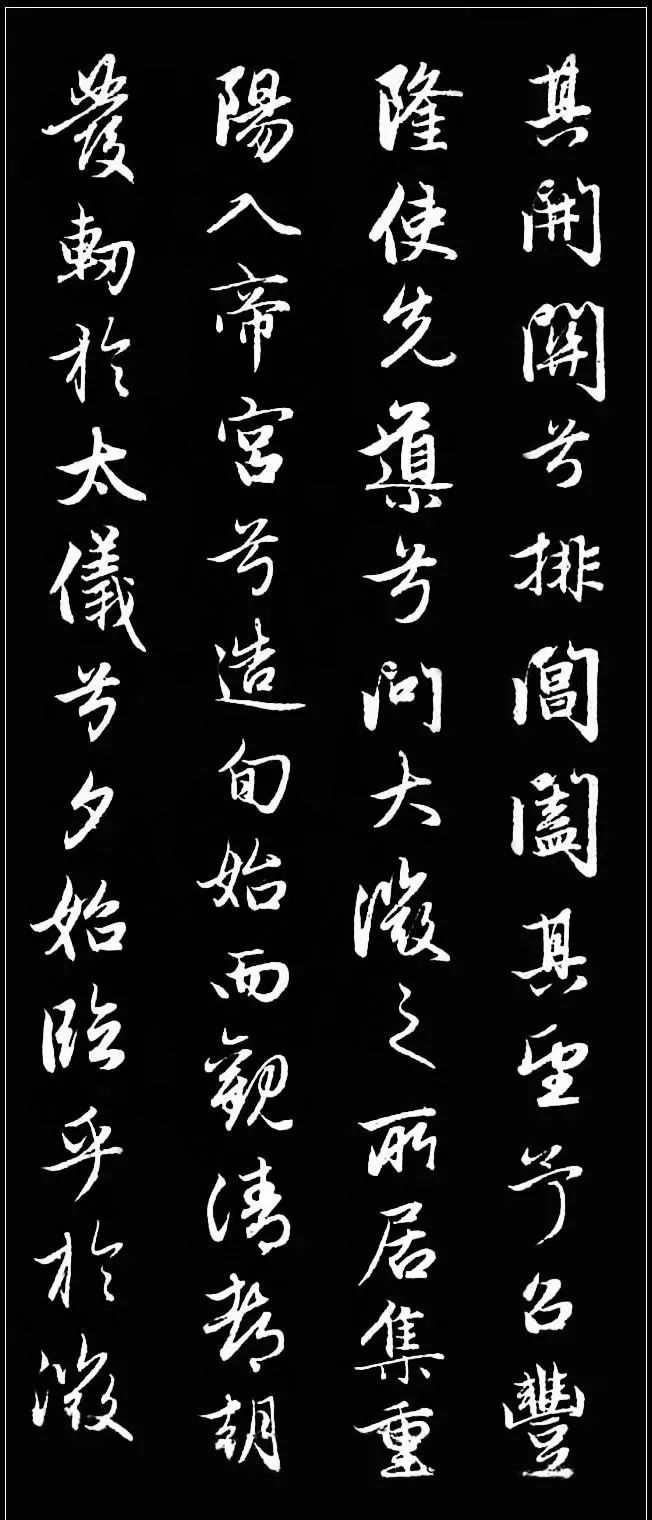 其開關兮排閶闔其望予召豐
隆使先導兮問大微之所居集重
陽入帝宮兮造旬始而觀清都朝
發軔於太儀兮夕始臨乎於微